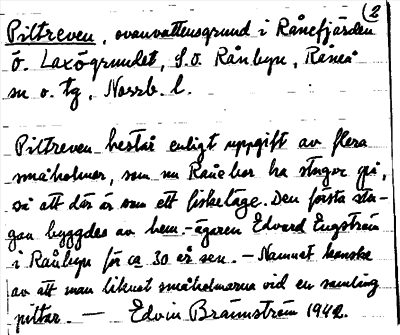 (2
Piltreven, ovanvattensgrund i Rånefjärden
ö. Laxögrundet, S.O. Rånbyn, Råneå
sn o. tg, Norrb. l.
Piltreven bestå enligt uppgift av flera
småholmar, som nu Rånebor ha stugor på,
så att där är som ett fiskeläge. Den första stu-
gan byggdes av hem.-ägaren Edvard Engström
i Rånbyn för ca 30 år sen. – Namnet kanske
av att man liknat småholmarna vid en samling
piltar. — Edvin Brännström 1942.